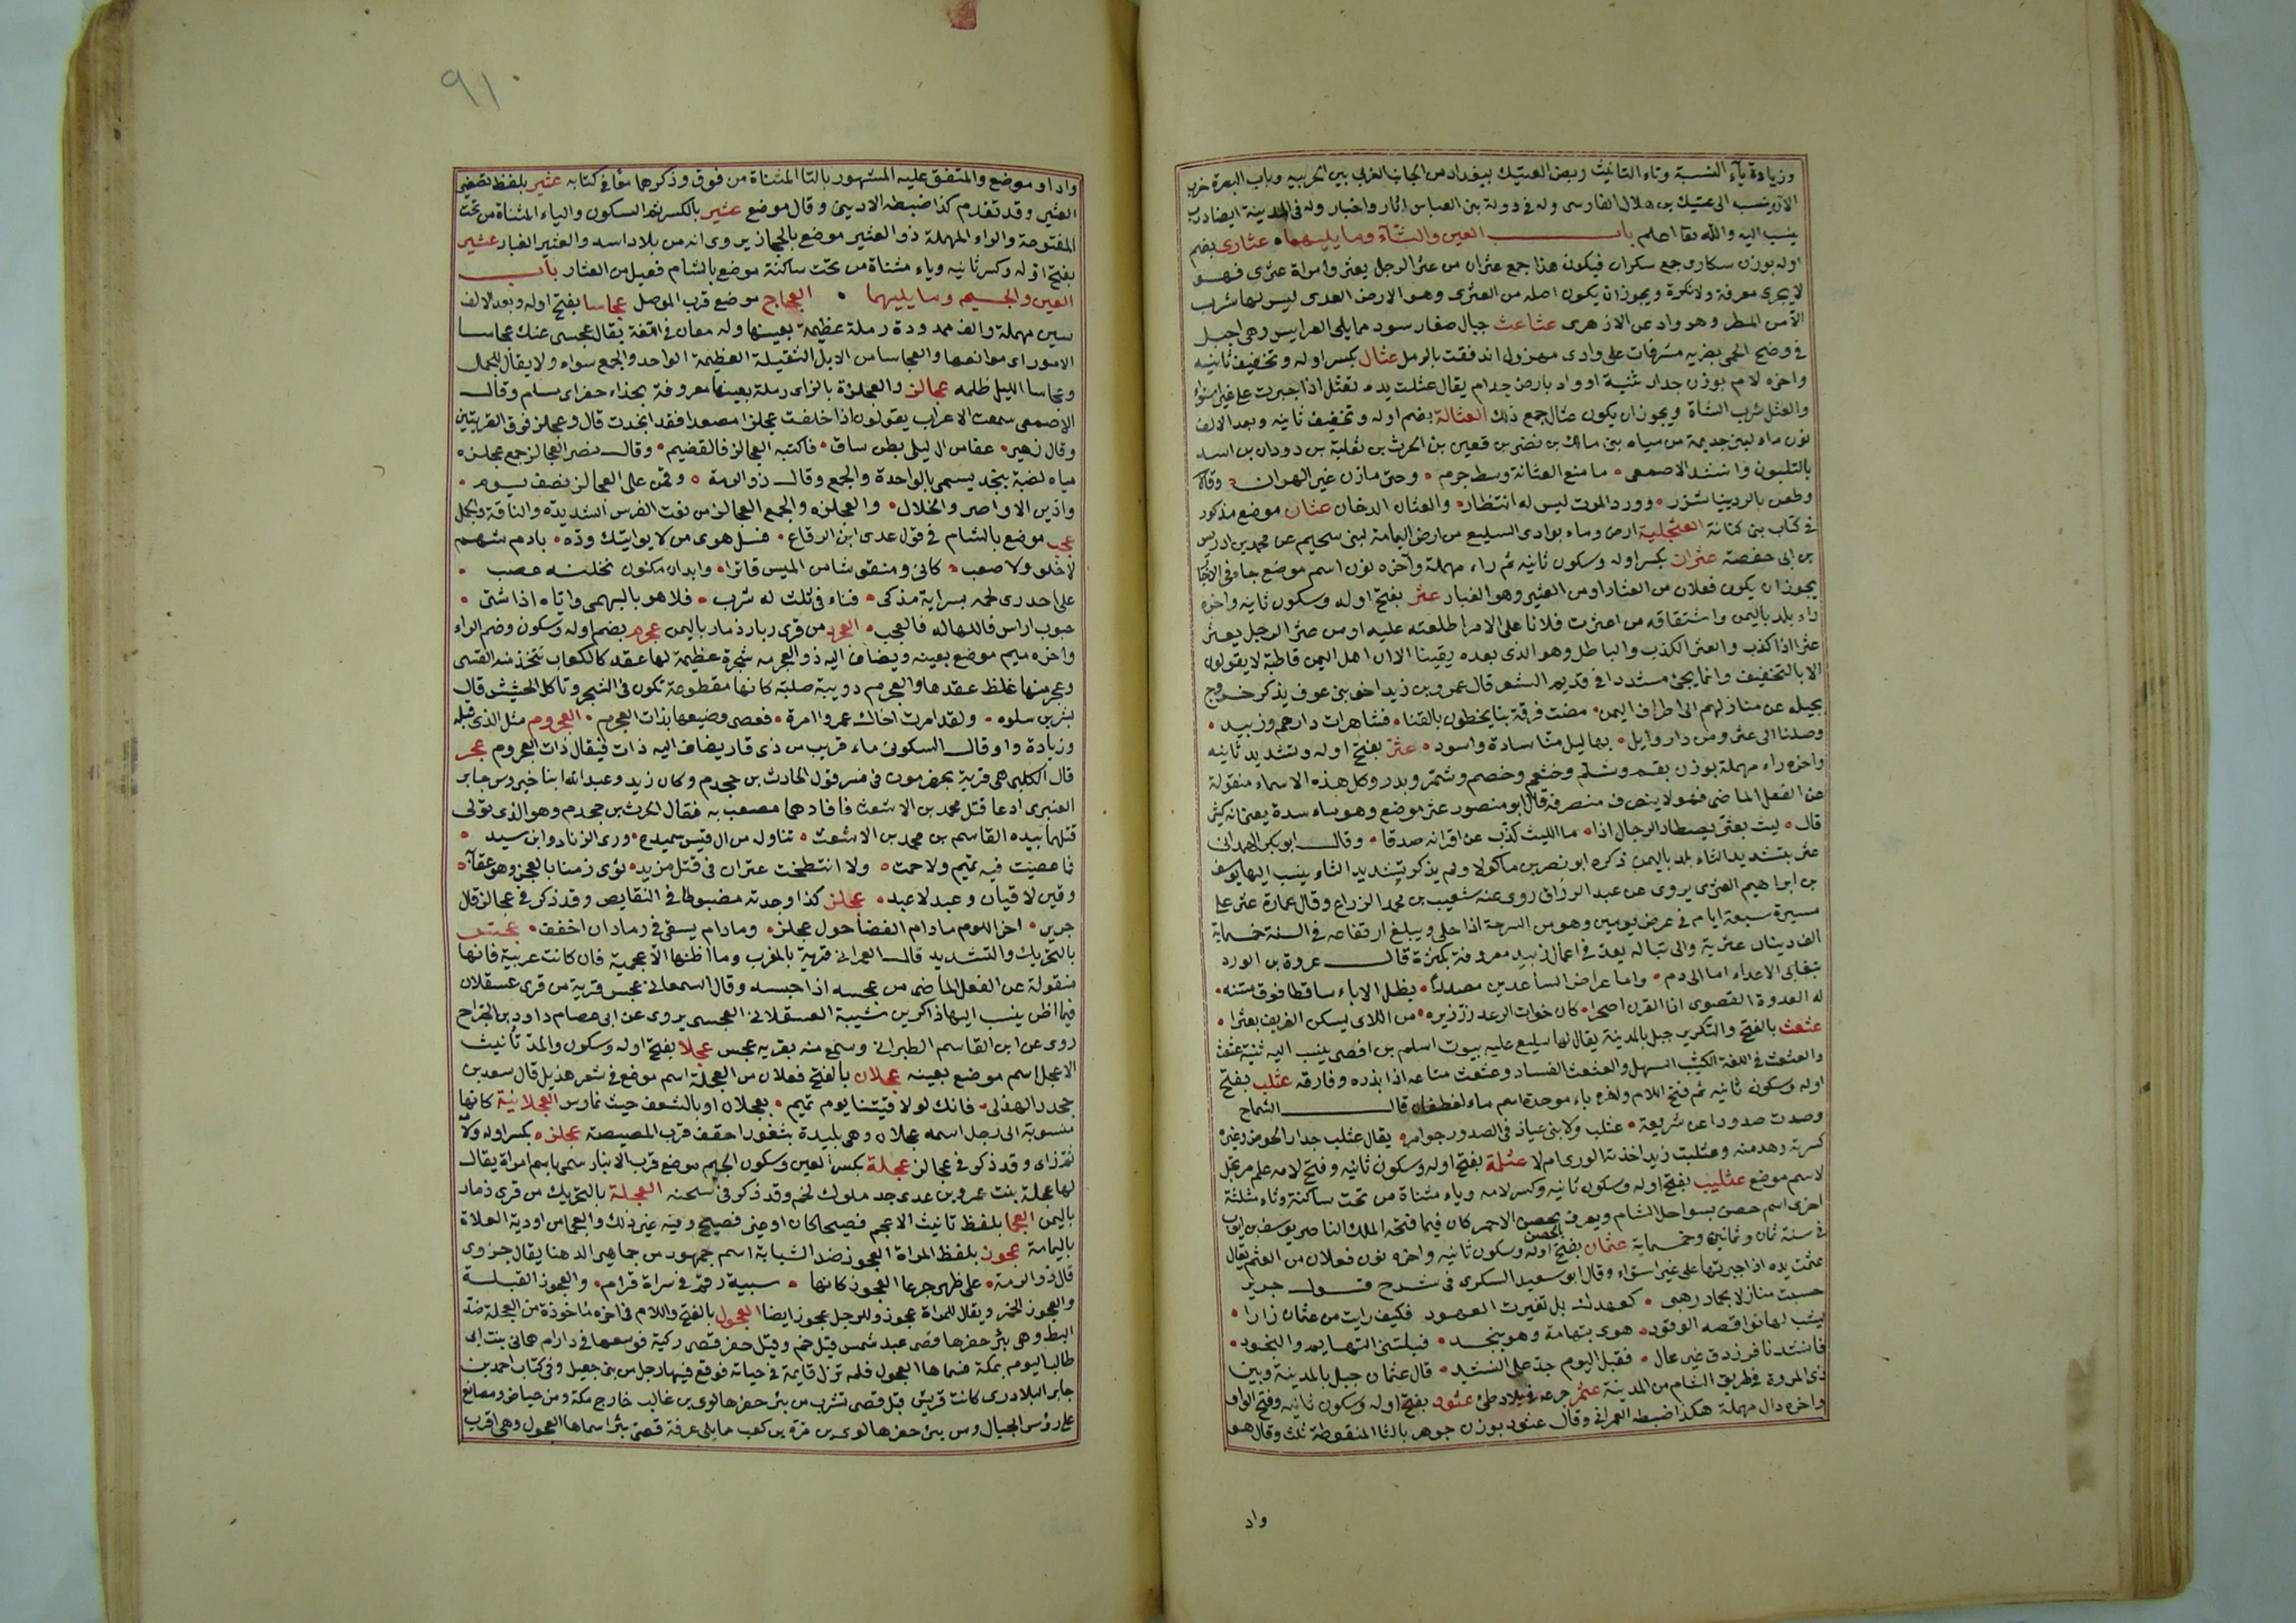 وزيادة ياء النسبة وتاء التانيث ربض العتيك ببغداد من الجانب الغربي بين الحربيه وباب البصرة خرب
الآن ينسب الى عتيك بن هلال الفارسى وله فى دولة بنى العباس اثار واخبار وله فى المدينة ايضا درب
ينسب اليه والله تعا اعلم باب العين والثاء وما يليهما عثارى بضم
اوله بوزن سكارى جمع سكران فيكون هذا جمع عثران من عثر الرجل يعثر وامراة عثرى فهو
لا يجرى معرفة ولا نكرة ويجوز ان يكون اصله من العثرى وهو الارض العدى ليس لها شرب
الا من المطر وهو واد عن الازهرى عثاعث جبال صغار سود مما يلى العرايس وهى اجبل
فى وضح الحمى بضريه مشرفات على وادى مهزول اندفقت بالرمل عثال بكسر اوله وتخفيف ثانيه
واخره لام بوزن جدار ثنية او واد بارض جذام يقال عثلت يده تعثل اذا جبرت على غير استواء
والعثل ثرب الشاة ويجوز ان يكون عثال جمع ذلك العثانة بضم اوله وتخفيف ثانيه وبعد الالف
نون ماء لبنى جذيمة من مياه بنى مالك بن نضر بن قعين بن الحرث بن ثعلبة بن دودان بن اسد
بالتلبون وانشد الاصمعى ما منع العثانة وسط جرم وحى مازن غير الهران وقال
وطعن بالردينيات شزر وورد الموت ليس له انتظار والعثان الدخان عثان موضع مذكور
فى كتاب بنى كنانة العثجلية ارض وماء بوادى السليع من ارض اليمامة لبنى سحيم عن محمد بن ادريس
بن ابى حفصة عثران بكسر اوله وسكون ثانيه ثم راء مهملة وآخره نون اسم موضع جاء فى
يجوز ان يكون فعلان من العثار او من العثير وهو الغبار عثر بفتح اوله وسكون ثانيه واخره
راء بلد باليمن واشتقاقه من اعثرت فلانا على الامر اطلعته عليه او من عثر الرجل يعثر
عثرا اذا كذب والعثر الكذب والباطل وهو الذى بعده يقينا الا ان اهل اليمن قاطبة لا يقولون
الا بالتخفيف وانما يجئ مشددا فى قديم الشعر قال عمرو بن زيد اخو بنى عوف يذكر خروج
بجيله عن منازلهم الى اطراف اليمن مضت فرقة بنا يخطون بالقنا فشاهرات دارهم وزبيد
وصلنا الى عثر ومن دار وايل بهاليل منا سادة واسود عثر بفتح اوله وتشديد ثانيه
واخره راء مهملة بوزن بقم وشلم وخثم وخضم وشمر وبذر وكل هذه الاسماء منقولة
عن الفعل الماضى فهو لا ينصرف منصرفة قال ابو منصور عثر موضع وهو ماسدة يعنى انه كثير
قال ليث بعثر يصطاد الرجال اذا ما الليث كذب عن اقرانه صدقا وقال ابو بكر الهمدانى
عثر بتشديد الثاء بلد باليمن ذكره ابو نصر بن ماكولا ولم يذكر تشديد الثاء ينسب اليها يوسف
بن ابراهيم العثرى يروى عن عبد الرزاق روى عنه شعيب بن محمد الزراع وقال عمارة عثر على
مسيرة سبعة ايام فى عرض يومين وهو من الشرجة اذا حلى ويبلغ ارتفاعه فى السنة خمسماية
الف دينار عثرية والى تباله يعد فى اعمال زبيد معروفة بكثرة قال عروة بن الورد
تبغانى الاعداء اما الى دم واما عراض الساعدين مصدرا يظل الاباء ساقطا فوق متنه
له العدوة القصوى اذا القرن اصحرا كان خوات الرعد رز زئيره من اللاى يسكن الغريف بعثرا
عثعث بالفتح والتكرير جبل بالمدينة يقال له سليع عليه بيوت اسلم بن افصى ينسب اليه ثنية عثعث
والعثعث فى اللغة الكثيب السهل والعثعث الفساد وعثعث متاعه اذا بذره وفارقه عثلب بفتح
اوله وسكون ثانيه ثم فتح اللام واخره باء موحدة اسم ماء لغطفان قال الشماخ
وصدت صدودا عن شريعة عثلب ولابنى عياذ فى الصدور جوامر يقال عثلب جدار الحوض وغيره
كسرته وهدمته وعثلبت زيدا اخذته لا ادرى ام لا عثلمة بفتح اوله وسكون ثانيه وفتح لامه علم مرتجل
لاسم موضع عثليب بفتح اوله وسكون ثانيه وكسر لامه وياء مثناة من تحت ساكنة وثاء مثلثة
اخرى اسم حصن بسواحل الشام ويعرف بحصن الاحمر كان فيما فتحه الملك الناصر يوسف بن ايوب
فى سنة ثمان وثمانين وخمسماية عثمان بفتح اوله وسكون ثانيه واخره نون فعلان من العثم يقال
عثمت يده اذا جبرتها على غير استواء وقال ابو سعيد السكرى فى شرح قول جرير
حسبت منازلا بجماد رهبى كعهدك بل تغيرت العهود فكيف رايت من عثمان نارا
يشب لها بواقصة الوقود هوى بتهامة وهو بنجد فبلتنى التهايم والنجود
فانشدنا فرزدق غير عال فقبل اليوم جدع النشد قال عثمان جبل بالمدينة وبين
ذى المروة فى طريق الشام من المدينة عثمر جرعه فى بلاد طى عثود بفتح اوله وسكون ثانيه وفتح الواو
واخره دال مهملة هكذا ضبطه العمرانى وقال عثود بوزن جوهر بالثا المنقوطة ثلث وقال هو
واد
٩١٠
واد او موضع والمتفق عليه المشهور بالتا المثناة من فوق وذكرها معا فى كتابه عثير بلفظ تصغير
العثير وقد تقدم كذا ضبطه الاديبى وقال موضع عثير بالكسر ثم السكون والياء المثناة من تحت
المفتوحة والراء المهملة ذو العثير موضع بالحجاز يروى انه من بلاد اسد والعثير الغبار عثير
بفتح اوله وكسر ثانيه وياء مثناة من تحت ساكنة موضع بالشام فعيل من العثار باب
العين والجيم وما يليهما العجاج موضع قرب الموصل عجاسا بفتح اوله وبعد الالف
سين مهملة والف ممدودة رملة عظيمة بعينها وله معان فى اللغة يقال عجسنى عنك عجاسا
الامور اى موانعها والعجاسا من الابل الثقيلة العظيمة الواحد والجمع سواء ولا يقال للجمل
وعجاسا الليل ظلمه عجالز والعجلزة بالزاى رملة بعينها معروفة بحذاء حفر ابى موسى وقال
الاصمعى سمعت الاعراب يقولون اذا خلفت عجلزا مصعدا فقد انجدت قال وعجلز فوق القريتين
وقال زهير عفا من ال ليلى بطن ساق فاكثبه العجالز فالقصيم وقال نصر العجالز جمع عجلزه
مياه لضبة بنجد يسمى بالواحدة والجمع وقال ذو الرمة وقمن على العجالز نصف يوم
وادين الاواصر والخلال والعجلزه والجمع العجالز من نعت الفرس الشديدة والناقة والجمل
عجب موضع بالشام فى قول عدى ابن الرقاع فسل هوى من لا يواتيك وده بادم شهم
لا خلو ولا صعب كانى ومنقوشا من الميس قاترا وابدان مكنون تحلته عصب
على اخدرى لحمه بسراته مذكى فتاء فى ثلث له شرب فلاهو بالبهمى واياه اذا شتى
جنوب اراش فاللهاله فالعجب العجرد من قرى زبار ذمار باليمن عجرم بضم اوله وسكون وضم الراء
واخره ميم موضع بعينه ويضاف اليه ذو العجرمه شجرة عظيمة لها عقد كالكعاب تتخذ منه القسى
وعجرمتها غلظ عقدها والعجرم دويبة صلبة كانها مقطوطة تكون فى الشجر وتاكل الحشيش قال
بشر بن سلوه ولقد امرت اخاك عمروا امرة فعصى وضيعها بذات العجرم العجروم مثل الذى قبله
وزيادة واو قال السكونى ماء قريب من ذى قار يضاف اليه ذات فيقال ذات العجروم عجز
قال الكلبى هى قرية بحضرموت فى فسر قول الحارث بن جحدم وكان زيد وعبد الله ابنا
العنبرى ادعا قتل محمد بن الاشعث فاقادهما مصعب به فقال الحرث بن جحدم وهو الذى تولى
قتلهما بيده القاسم بن محمد بن الاشعث تناوله من ال قيس سميدع ورى الزناد وابن سيد
فما عصيت فيه تميم ولا حمت ولا انتطحت عنزان فى قتل مزيد ثوى زمنا بالعجز وهو عقابه
وقين لاقيان وعبد لاعبد عجلز كذا وجدته مضبوطا فى النقايص وقد ذكر فى عجالز قال
جرير اخز اللوم مادام الغضا حول عجلز ومادام يسقى فى رمادان احقف عجس
بالتحريك والتشديد قال العمرانى قرية بالمغرب وما اظنها الا عجمية فان كانت عربية فانها
منقولة عن الفعل الماضى من عجسه اذا حبسه وقال السمعانى عجس قرية من قرى عسقلان
فيما اظن ينسب اليها ذاكر بن شيبة العسقلانى العجسى يروى عن ابى عصام داود بن الجراح
روى عن ابن القاسم الطبرانى وسمع منه بقريه عجس عجلا بفتح اوله وسكون والمد تانيث
الاعجل اسم موضع بعينه عجلان بالفتح فعلان من العجلة اسم موضع فى شعر هذيل قال سعد بن
جحدر الهذلى فانك لو لاقيتنا يوم تميم بعجلان او بالشعف حيث نمارس العجلانية كانها
منسوبة الى رجل اسمه عجلان وهى بليدة بثغور احقف قرب المصيصة عجلزه بكسر اوله
ثم زاى وقد ذكر فى عجالز عجلة بكسر العين وسكون الجيم موضع قرب الانبار سمى باسم امراة يقال
لها عجلة بنت عمرو بن عدى جد ملوك لخم وقد ذكر فى سحنه العجلة بالتحريك من قرى ذمار
باليمن العجما بلفظ تانيث الاعجم فصيحا كان او غير فصيح وفيه غير ذلك والعجما من اودية العلاة
باليمامة عجوز بلفظ المراة العجوز ضد الشابة اسم جمهور من جماهير الدهنا يقال حزوى
قال ذو الرمة على ظهر جرعا العجوز كانها سبيبة رقم فى سراة قرام والعجوز القبلة
والعجوز الخمر ويقال للمراة عجوز وللرجل عجوز ايضا العجول بالفتح واللام فى اخره ماخوذة من العجلة ضد
البطء وهى بئر حفرها قصى عبد شمس قبل خم وقيل حفر قصى ركية فوسعها فى دار ام هانى بنت ابى
طالب اليوم بمكة فسماها العجول فلم تزل قايمة فى حياته فوقع فيها رجل من بنى جعيل وفى كتاب احمد بن
جابر البلادرى كانت قريش قبل قصى تشرب من بئر حفرها لوى بن غالب خارج مكة ومن حياض ومصانع
على رؤس الجبال ومن بئر حفرها لوى بن مرة بن كعب مما يلى عرفة قصى بئرا سماها العجول وهى اقرب